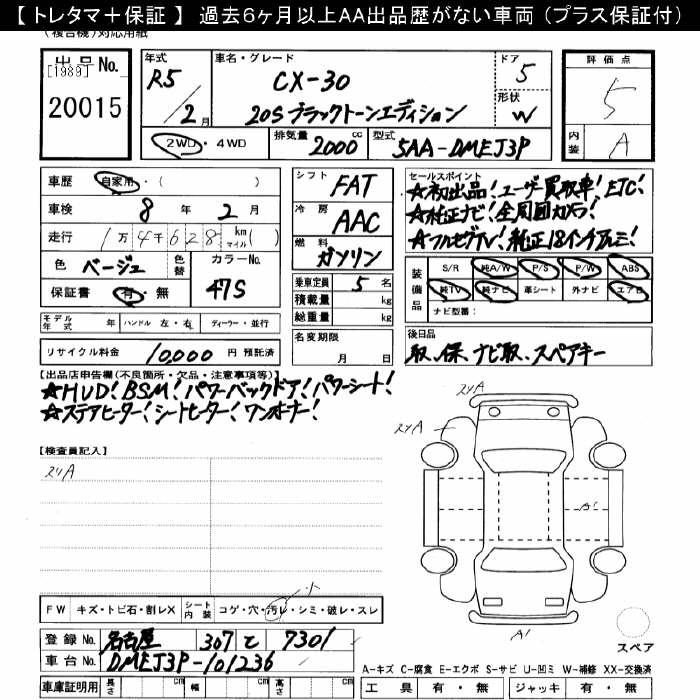 【 トレタマ＋保証 】 過去６ヶ月以上ＡＡ出品歴がない車両 （プラス保証付）
(複合機)対応用紙
出品No.
[1989]
20015
年式
R5 / 2月
車名・グレード
CX-30
20Sブラックトーンエディション
ドア
5
形状
W
評価点
5
内装
A
2WD・4WD
排気量 2000 cc
型式 5AA-DMEJ3P
車歴 自家用・( )
車検 8年 2月
走行 1万4千628 km マイル ( )
色 ベージュ
色替
カラーNo. 47S
保証書 有・無
シフト FAT
冷房 AAC
燃料 ガソリン
乗車定員 5名
積載量 kg
総重量 kg
セールスポイント
☆初出品!ユーザー買取車!ETC!
☆純正ナビ!全周囲カメラ!
☆フルセグTV!純正18インチアルミ!
装備品
S/R 純A/W P/S P/W ABS
純TV 純ナビ 革シート 外ナビ エアB
ナビ型番:
モデル年式 年 ハンドル 左・右 ディーラー・並行
名変期限
月 日
リサイクル料金 10,000 円 預託済
後日品
取、保、ナビ取、スペアキー
【出品店申告欄(不良箇所・欠品・注意事項等)】
☆HUD!BSM!パワーバックドア!パワーシート!
☆ステアヒーター!シートヒーター!ワンオーナー!
【検査員記入】
スリA
スリA
スリA
A1
A1
FW キズ・トビ石・割レX
シート内装 コゲ・穴・汚レ・シミ・破レ・スレ
登録No. 名古屋 307 て 7301
車台No. DMEJ3P-101236
スペア
A-キズ C-腐食 E-エクボ S-サビ U-凹ミ W-補修 XX-交換済
車庫証明用 長さ cm 幅 cm 高さ cm
工具 有・無 ジャッキ 有・無